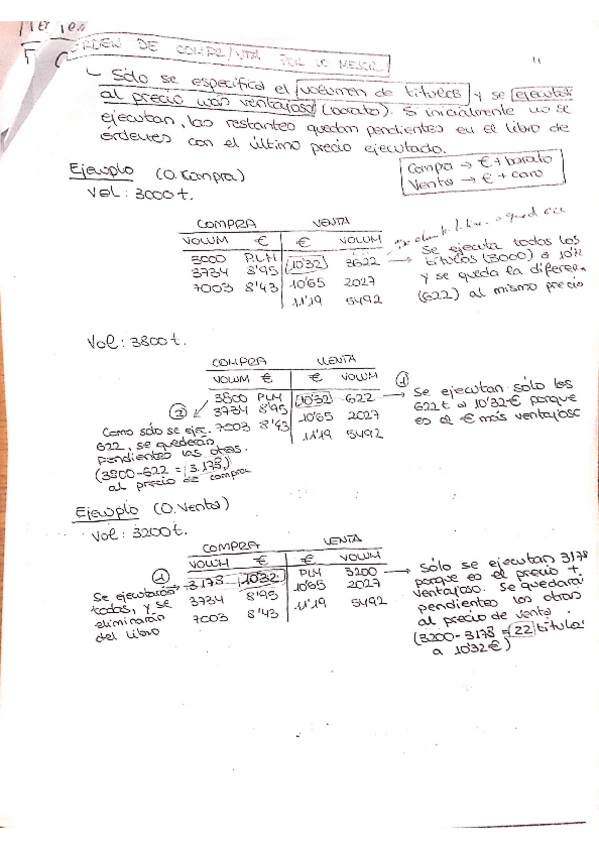 ORDEN DE COMPRA/VTA POR LO MEJOR
Sólo se especifica el volumen de títulos y se ejecutan
al precio más ventajoso (barato). Si inicialmente no se
ejecutan, las restantes quedan pendientes en el libro de
órdenes con el último precio ejecutado.
Compra → € + barato
Venta → € + caro
Ejemplo (O. Compra)
Vol: 3000 t.
COMPRA VENTA
VOLUM € € VOLUM
3000 PLM 10'32 3622
3734 8'95 10'65 2027
7003 8'43 11'19 5492
Se ejecuta todos los
títulos (3000) a 10'32
y se queda la diferen.
(622) al mismo precio
Vol: 3800 t.
COMPRA VENTA
VOLUM € € VOLUM
3800 PLM 10'32 622
3734 8'95 10'65 2027
7003 8'43 11'19 5492
① Se ejecutan sólo los
622 t a 10'32€ porque
es el € más ventajoso
② Como sólo se ejec.
622, se quedarán
pendientes las otras.
(3800-622 = 3.178,)
al precio de compra
Ejemplo (O. Venta)
Vol: 3200 t.
COMPRA VENTA
VOLUM € € VOLUM
3.178 10'32 PLM 3200
3734 8'95 10'65 2027
7003 8'43 11'19 5492
① Se ejecutarán
todas, y se
eliminarán
del libro
Sólo se ejecutan 3178
porque es el precio +
ventajoso. Se quedará
pendientes las otras
al precio de venta.
(3200-3178 = 22 títulos
a 10'32€)